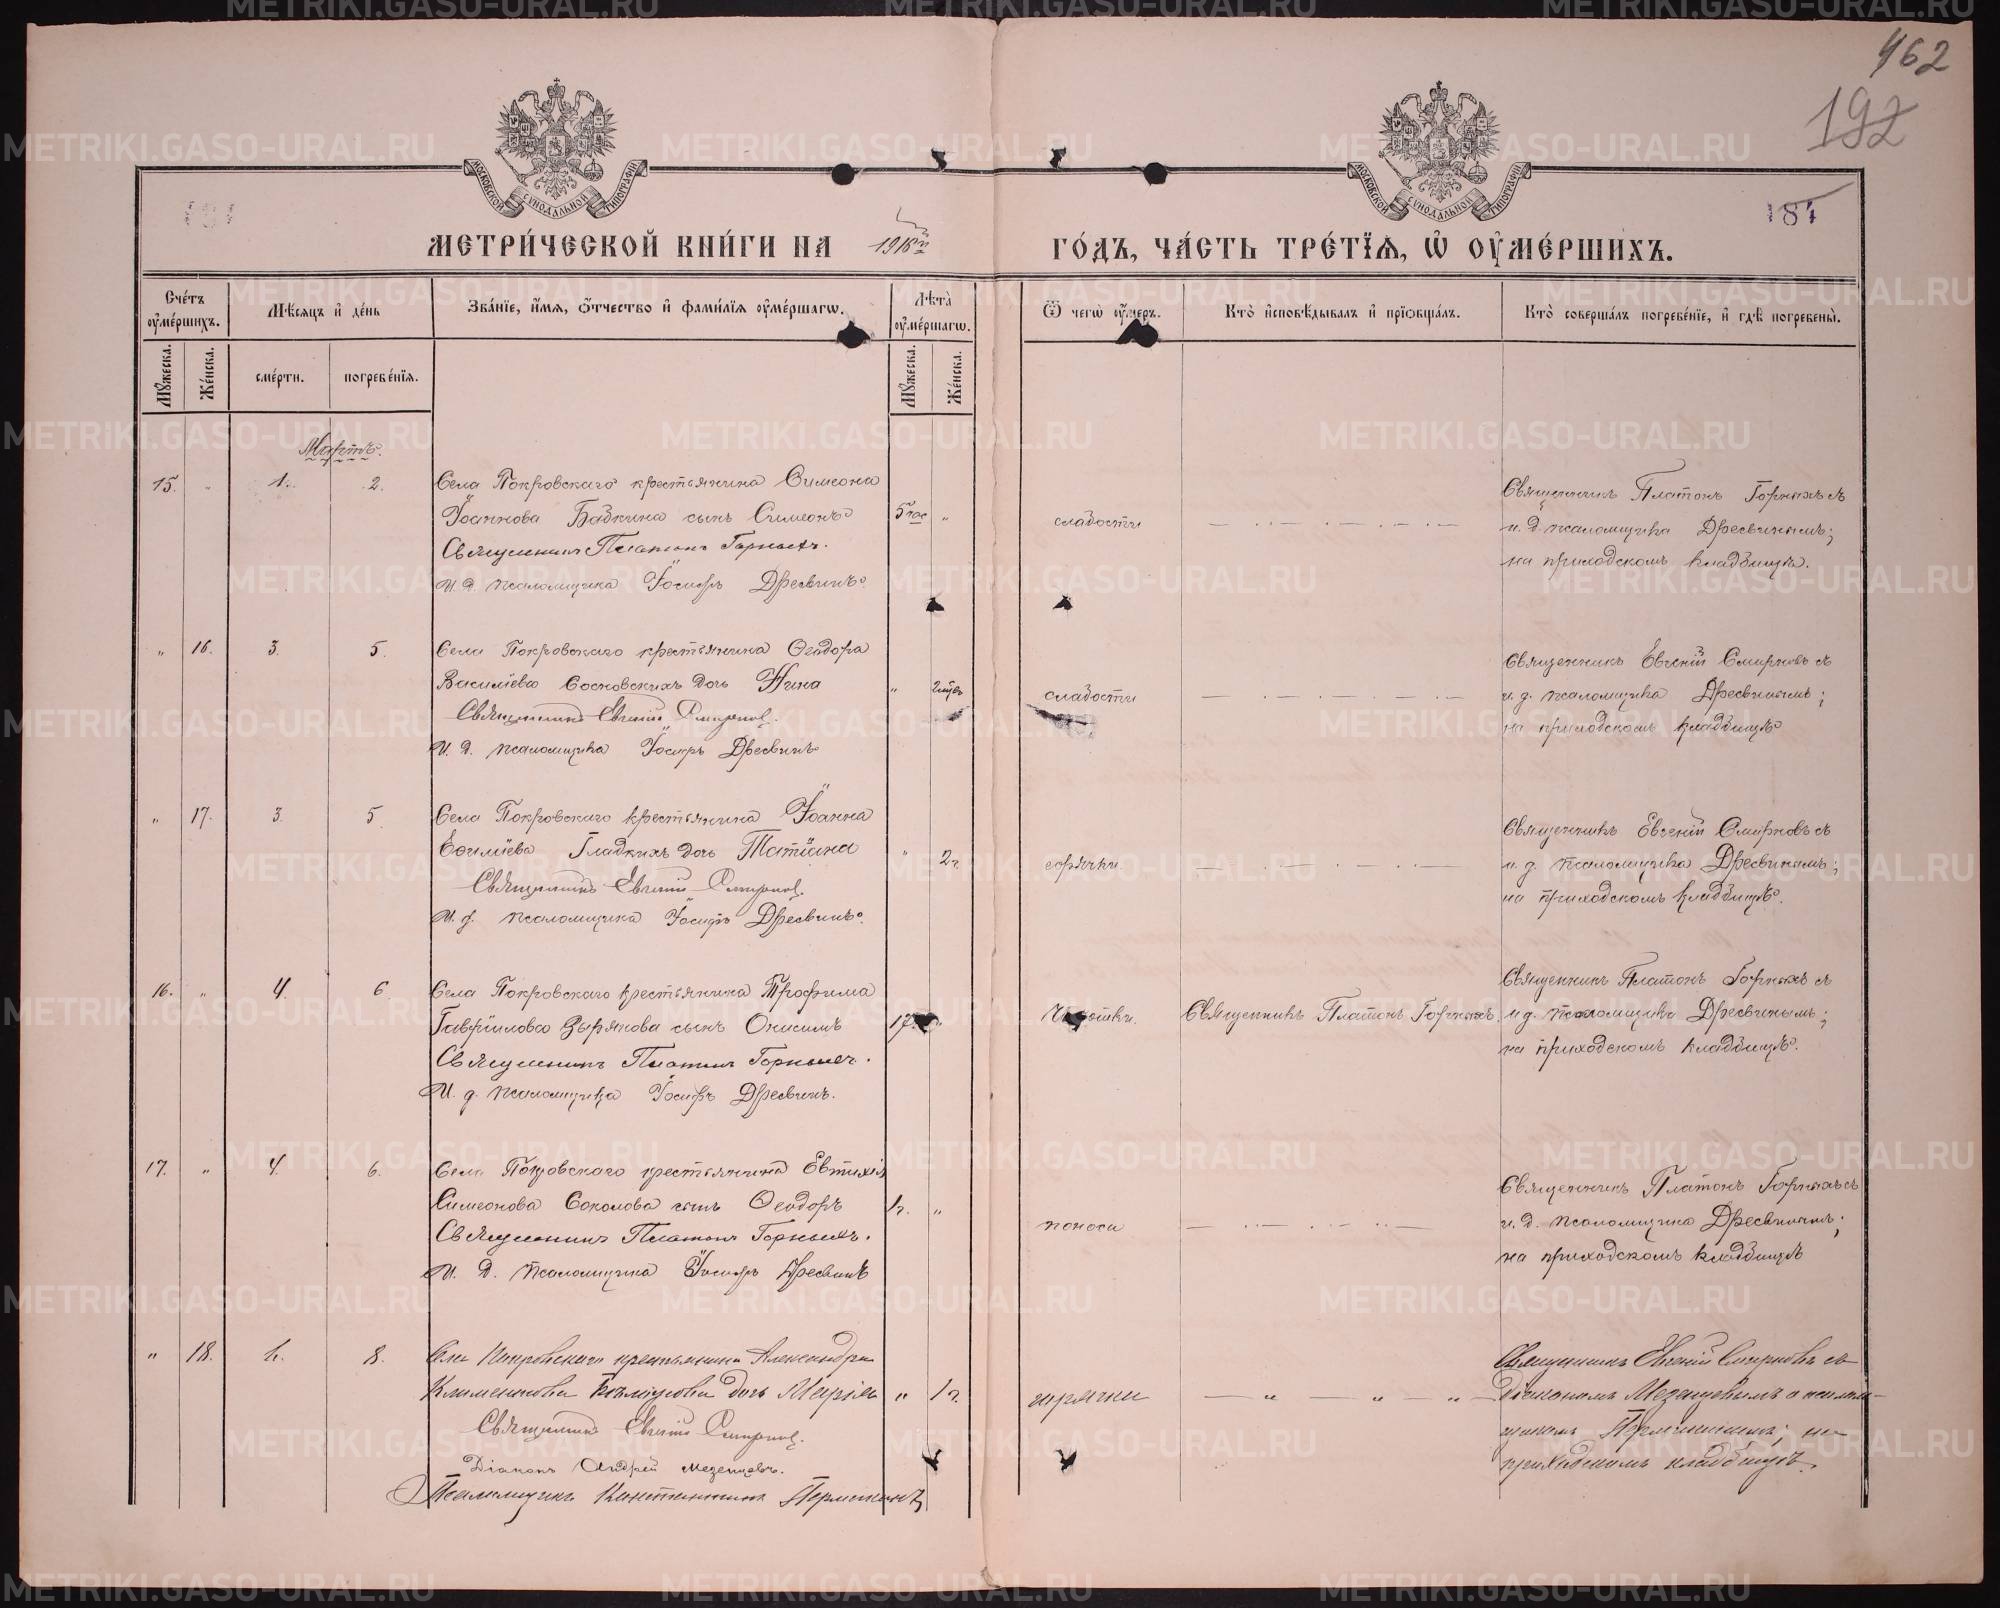 462
192
184
МОСКОВСКОЙ СѴНОДАЛЬНОЙ ТИПОГРАФІИ
МОСКОВСКОЙ СѴНОДАЛЬНОЙ ТИПОГРАФІИ
МЕТРИ́ЧЕСКОЙ КНИ́ГИ НА 1916й ГО́ДЪ, ЧА́СТЬ ТРЕ́ТЇѦ, Ѡ҆ ОУ҆МЕ́РШИХЪ.
Сче́тъ оу҆ме́ршихъ.
Мѣ́сѧцъ и҆ де́нь
Зва́нїе, и҆́мѧ, ѻ҆́тчество и҆ фами́лїѧ оу҆ме́ршагѡ.
Лѣ́та оу҆ме́ршагѡ.
Ѿ чегѡ̀ оу҆́меръ.
Кто̀ и҆сповѣ́дывалъ и҆ прїѡбща́лъ.
Кто̀ соверша́лъ погребе́нїе, и҆ гдѣ̀ погребены̀.
Мꙋ́жеска.
Же́нска.
сме́рти.
погребе́нїѧ.
Мꙋ́жеска.
Же́нска.
Мартъ.
15. " 1. 2.
Села Покровскаго крестьянина Симеона
Іоаннова Бабкина сынъ Симеонъ
Священникъ Платонъ Горныхъ.
И. д. псаломщика Іосифъ Дресвинъ.
5 час "
слабости
Священникъ Платонъ Горныхъ съ
и. д. псаломщика Дресвинымъ;
на приходскомъ кладбищѣ.
" 16. 3. 5.
Села Покровскаго крестьянина Ѳеодора
Василіева Сосновскихъ дочь Нина
Священникъ Евгеній Смирновъ.
И. д. псаломщика Іосифъ Дресвинъ
" 2 мѣс
слабости
Священникъ Евгеній Смирновъ съ
и. д. псаломщика Дресвинымъ;
на приходскомъ кладбищѣ
" 17. 3. 5.
Села Покровскаго крестьянина Іоанна
Евѳиміева Гладкихъ дочь Татіана
Священникъ Евгеній Смирновъ.
И. д. псаломщика Іосифъ Дресвинъ.
" 2 г.
горячки
Священникъ Евгеній Смирновъ съ
и. д. псаломщика Дресвинымъ;
на приходскомъ кладбищѣ.
16. " 4. 6.
Села Покровскаго крестьянина Трофима
Гавріилова Зырянова сынъ Онисимъ
Священникъ Платонъ Горныхъ.
И. д. псаломщика Іосифъ Дресвинъ.
Священникъ Платонъ Горныхъ.
Священникъ Платонъ Горныхъ съ
и. д. псаломщика Дресвинымъ;
на приходскомъ кладбищѣ.
17. " 4. 6.
Села Покровскаго крестьянина Евтихія
Симеонова Соколова сынъ Ѳеодоръ
Священникъ Платонъ Горныхъ.
И. д. псаломщика Іосифъ Дресвинъ
1 г. "
поноса
Священникъ Платонъ Горныхъ съ
и. д. псаломщика Дресвинымъ;
на приходскомъ кладбищѣ
" 18. 8.
Села Покровскаго крестьянина Александра
дочь Марія
Священникъ Евгеній Смирновъ.
Діаконъ Андрей Мезенцевъ.
Псаломщикъ Константинъ
" 1 г.
горячки
Священникъ Евгеній Смирновъ съ
Діакономъ Мезенцевымъ и псалом-
щикомъ на
приходскомъ кладбищѣ.
METRIKI.GASO-URAL.RU